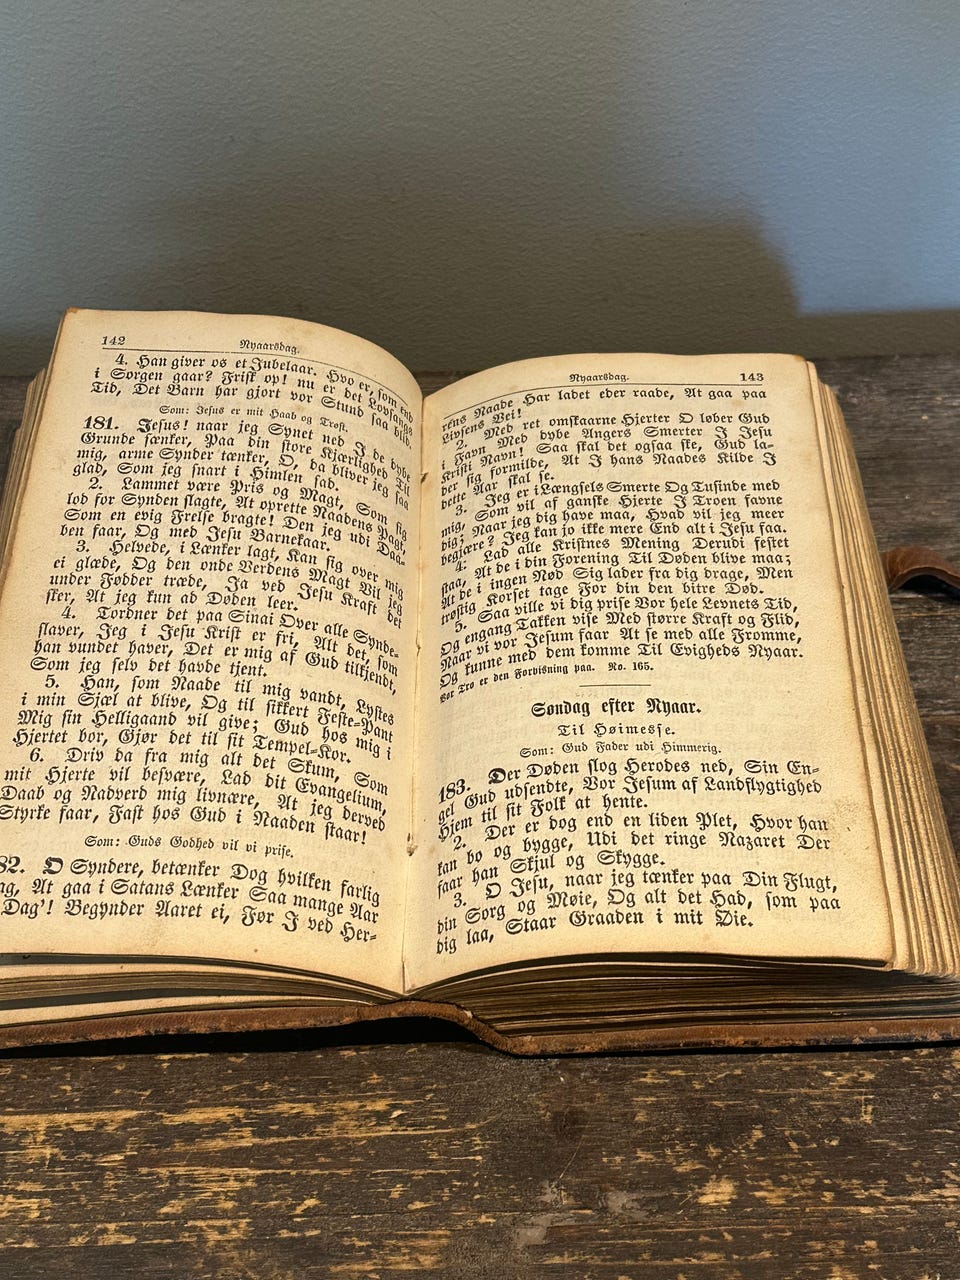 142
Nyaarsdag.
4. Han giver os et Jubelaar. Hvo er, som end
i Sorgen gaar? Frisk op! nu er det Lovsangs
Tid, Det Barn har gjort vor Stund saa blid.
Som: Jesus er mit Haab og Trøst.
181. Jesus! naar jeg Synet ned I de dybe
Grunde sænker, Paa din store Kjærlighed Til
mig, arme Synder tænker, O, da bliver jeg saa
glad, Som jeg snart i Himlen sad.
2. Lammet være Pris og Magt, Som sig
lod for Synden slagte, At oprette Naadens Pagt,
Som en evig Frelse bragte! Den jeg udi Daa-
ben faar, Og med Jesu Barnekaar.
3. Helvede, i Lænker lagt, Kan sig over mig
ei glæde, Og den onde Verdens Magt Vil jeg
under Fødder træde, Ja ved Jesu Kraft det
sker, At jeg kun ad Døden leer.
4. Tordner det paa Sinai Over alle Synde-
slaver, Jeg i Jesu Krist er fri, Alt det, som
han vundet haver, Det er mig af Gud tilkjendt,
Som jeg selv det havde tjent.
5. Han, som Naade til mig vandt, Lystes
i min Sjæl at blive, Og til sikkert Feste-Pant
Mig sin Helligaand vil give; Gud hos mig i
Hjertet bor, Gjør det til sit Tempel-Kor.
6. Driv da fra mig alt det Skum, Som
mit Hjerte vil besvære, Lad dit Evangelium,
Daab og Nadverd mig livnære, At jeg derved
Styrke faar, Fast hos Gud i Naaden staar!
Som: Guds Godhed vil vi prise.
82. O Syndere, betænker Dog hvilken farlig
ag, At gaa i Satans Lænker Saa mange Aar
Dag'! Begynder Aaret ei, Før I ved Her-
Nyaarsdag.
143
rens Naade Har ladet eder raade, At gaa paa
Livsens Vei!
2. Med ret omskaarne Hjerter O løber Gud
i Favn Med dybe Angers Smerter I Jesu
Kristi Navn! Saa skal det ogsaa ske, Gud la-
der sig formilde, At I hans Naades Kilde I
dette Aar skal se.
3. Jeg er i Længsels Smerte Og Tusinde med
mig, Som vil af ganske Hjerte I Troen favne
dig; Naar jeg dig have maa, Hvad vil jeg meer
begjære? Jeg kan jo ikke mere End alt i Jesu faa.
4. Lad alle Kristnes Mening Derudi festet
staa, At de i din Forening Til Døden blive maa;
At de i ingen Nød Sig lader fra dig drage, Men
trøstig Korset tage For din den bitre Død.
5. Saa ville vi dig prise Vor hele Levnets Tid,
Og engang Takken vise Med større Kraft og Flid,
Naar vi vor Jesum faar At se med alle Fromme,
Og kunne med dem komme Til Evigheds Nyaar.
Vor Tro er den Forvisning paa. No. 165.
Søndag efter Nyaar.
Til Høimesse.
Som: Gud Fader udi Himmerig.
183. Der Døden slog Herodes ned, Sin En-
gel Gud udsendte, Vor Jesum af Landflygtighed
Hjem til sit Folk at hente.
2. Der er dog end en liden Plet, Hvor han
kan bo og bygge, Udi det ringe Nazaret Der
faar han Skjul og Skygge.
3. O Jesu, naar jeg tænker paa Din Flugt,
din Sorg og Møie, Og alt det Had, som paa
dig laa, Staar Graaden i mit Øie.